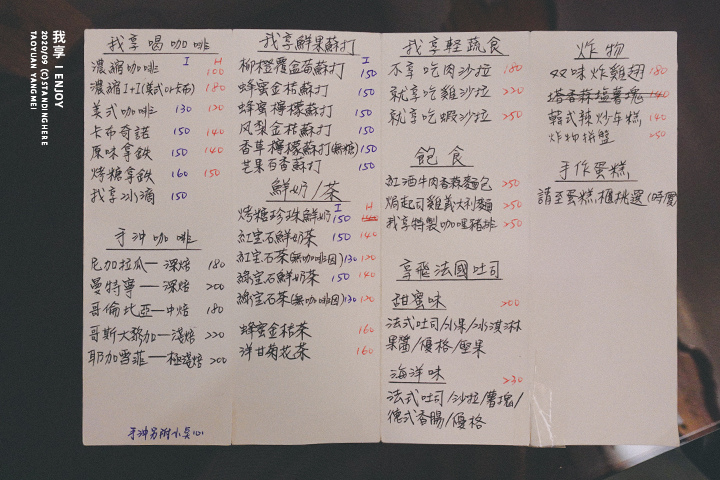 我享 I ENJOY
2020/09 (C)STANDINGHERE
TAOYUAN YANGMEI
我享喝咖啡
I H
濃縮咖啡 100
濃縮1+1(美式or卡布) 180
美式咖啡 130 120
卡布奇諾 150 140
原味拿鐵 150 140
烤糖拿鐵 160 150
我享冰滴 150
手沖咖啡
尼加拉瓜—深焙 180
曼特寧—深焙 200
哥倫比亞—中焙 180
哥斯大黎加—淺焙 220
耶加雪菲—極淺焙 200
手沖另附小點心
我享鮮果蘇打
I
柳橙覆盆莓蘇打 150
蜂蜜金桔蘇打 150
蜂蜜檸檬蘇打 150
鳳梨金桔蘇打 150
香草檸檬蘇打(無糖) 150
芒果百香蘇打 150
鮮奶/茶
I H
烤糖珍珠鮮奶 150
紅宝石鮮奶茶 150 140
紅宝石茶(無咖啡因) 130 120
綠宝石鮮奶茶 150 140
綠宝石茶(無咖啡因) 130 120
蜂蜜金桔茶 160
洋甘菊花茶 160
我享輕蔬食
不享吃肉沙拉 180
就享吃雞沙拉 220
就享吃蝦沙拉 250
飽食
紅酒牛肉香蒜麵包 250
焗起司雞義大利麵 250
我享特製咖哩豬排 250
享飛法國吐司
甜蜜味 200
法式吐司/水果/冰淇淋
果醬/優格/堅果
海洋味 230
法式吐司/沙拉/薯塊/
德式香腸/優格
炸物
双味炸雞翅 180
塔香蒜塩薯塊 140
韓式辣炒年糕 140
炸物拼盤 250
手作蛋糕
請至蛋糕櫃挑選